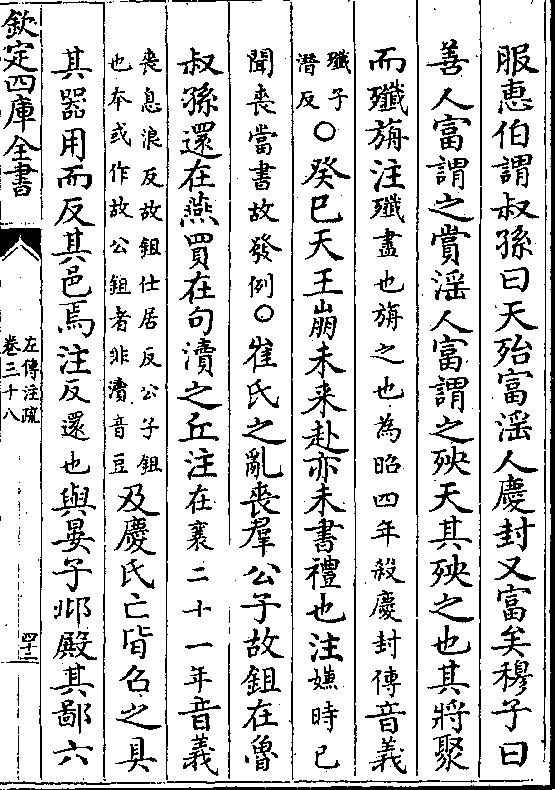 服惠伯謂叔孫曰天殆富淫人慶封又富矣穆子曰
善人富謂之賞淫人富謂之殃天其殃之也其將聚
而殲旃注殲盡也旃之也為昭四年殺慶封傳音義
殲子
潛反
○癸巳天王崩未来赴亦未書禮也注嫌時已
聞喪當書故發例○崔氏之亂喪羣公子故鉏在魯
叔孫還在燕賈在句瀆之丘注在襄二十一年音義
喪息浪反故鉏仕居反公子鉏
也本或作故公鉏者非瀆音豆
及慶氏亡皆召之具
其器用而反其邑焉注反還也與晏子邶殿其鄙六
欽定四庫全書
左傳注疏
卷三十八
四十二